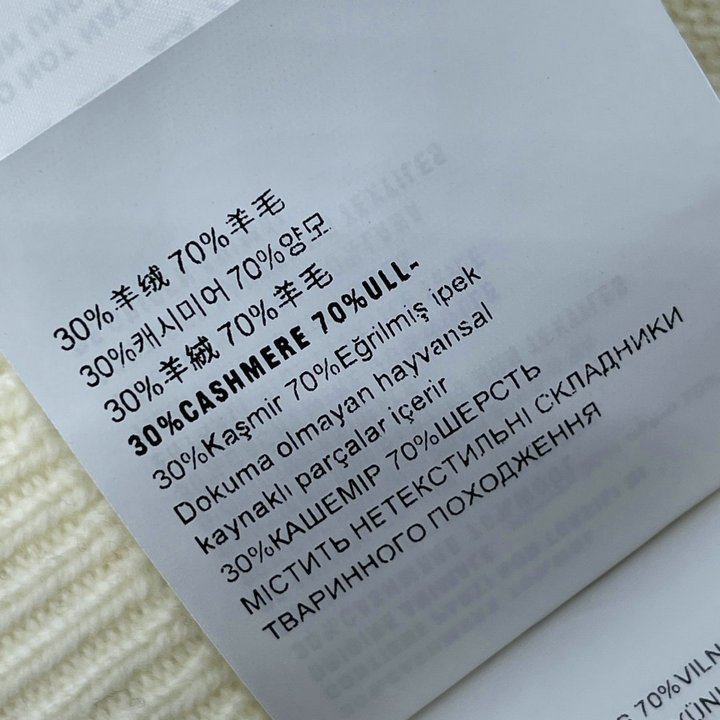 30%羊绒 70%羊毛
30%캐시미어 70%양모
30%羊絨 70%羊毛
30%CASHMERE 70%ULL-
30%Kaşmir 70%Eğrilmiş ipek
Dokuma olmayan hayvansal
kaynaklı parçalar içerir
30%КАШЕМІР 70%ШЕРСТЬ
МІСТИТЬ НЕТЕКСТИЛЬНІ СКЛАДНИКИ
ТВАРИННОГО ПОХОДЖЕННЯ
70%VILN